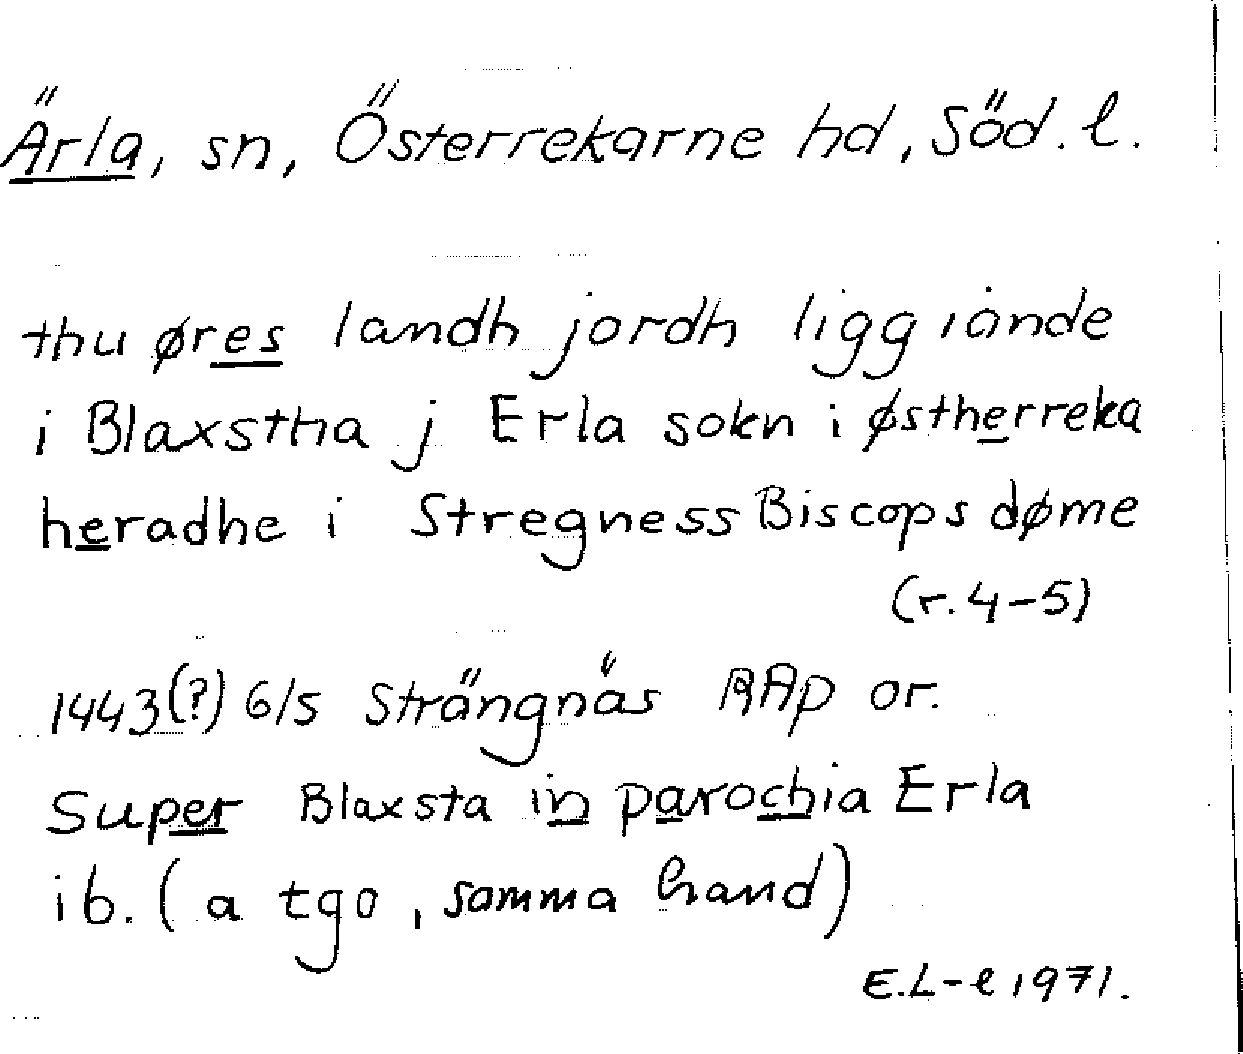 Ärla, sn, Österrekarne hd, Söd. l.
thu øres landh jordh liggiande
i Blaxstha j Erla sokn i østherreka
heradhe i Stregness Biscops døme
(r. 4-5)
1443(?) 6/5 Strängnäs RAp or.
Super Blaxsta in parochia Erla
ib. (a tgo, samma hand)
E.L-l 1971.